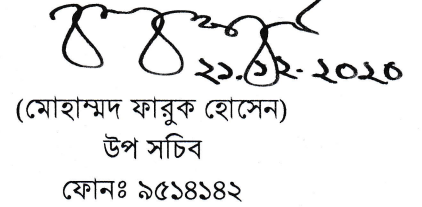 ২১.১২.২০২০
(মোহাম্মদ ফারুক হোসেন)
উপ সচিব
ফোনঃ ৯৫১৪১৪২